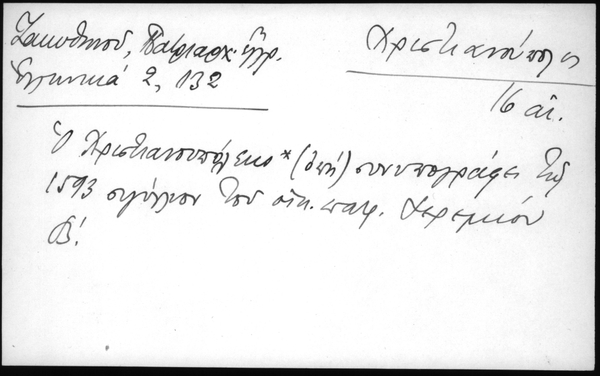 Ζακυθηνοῦ, Πατριαρχ. ἔγγρ.
Ἑλληνικά 2, 132
Χριστιανούπολις
16 αἰ.
Ὁ Χριστιανουπόλεως * (ὀπή) συνυπογράφει τῷ
1593 σιγίλλιον τοῦ οἰκ. πατρ. Ἱερεμίου
Β΄.